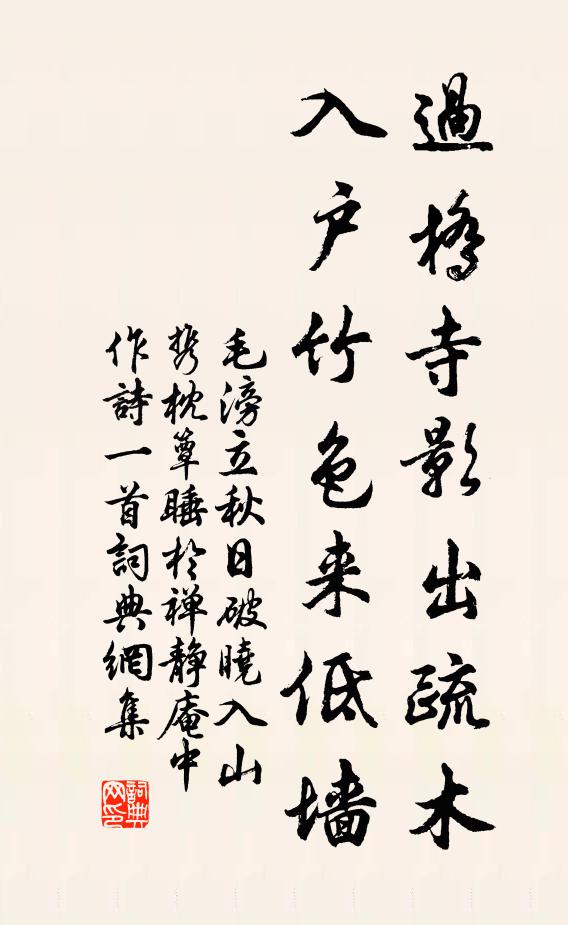 過橋寺影出疏木
入户竹色来低墙
毛滂立秋日破曉入山
携枕簟睡於禅靜庵中
作詩一首詞典網集
詞典
网印